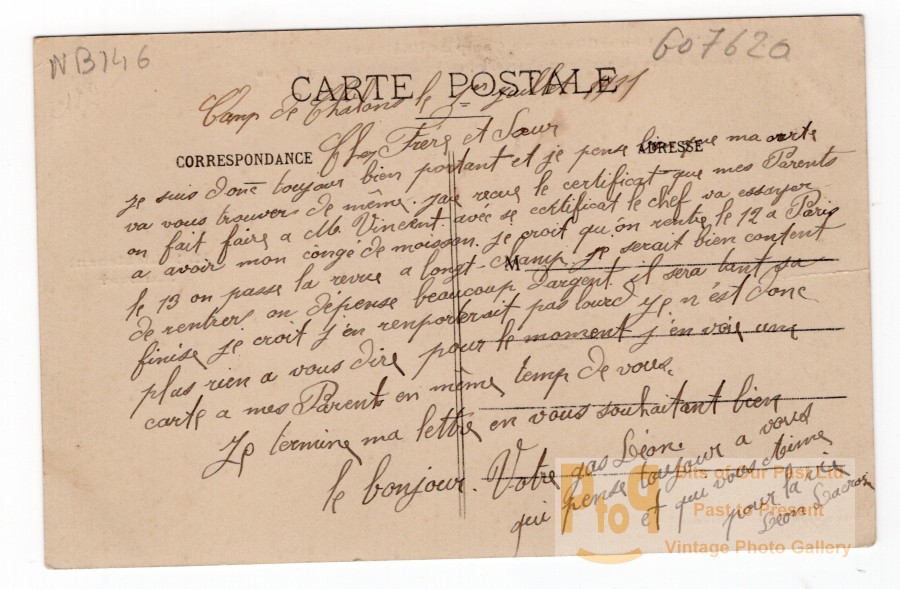 NB746
607620
CARTE POSTALE
Camp de Chalons le juillet
CORRESPONDANCE
ADRESSE
Cher Frère et Sœur
je suis donc toujour bien portant et je pense bien que ma carte
va vous trouver de même. j'ai recue le certificat que mes Parents
on fait faire a Mr Vincent. avec se certificat le chef va essayer
a avoir mon congé de moisson. je croit qu'on rentre le 12 a Paris
le 13 on passe la revue a longt-champ. je serait bien content
M
de rentrer on dépense beaucoup d'argent il sera tant sa
finise je croit j'en remporterait pas lourd je n'est donc
plas rien a vous dire pour le moment j'en voie une
carte a mes Parents en même temp de vous.
Je termine ma lettre en vous souhaitant bien
le bonjour. Votre gas Léon.
qui pense toujour a vous
et qui vous Aime
pour la vie
Léon
PtoP
Bits of Our Past Ltd
Past to Present
Vintage Photo Gallery